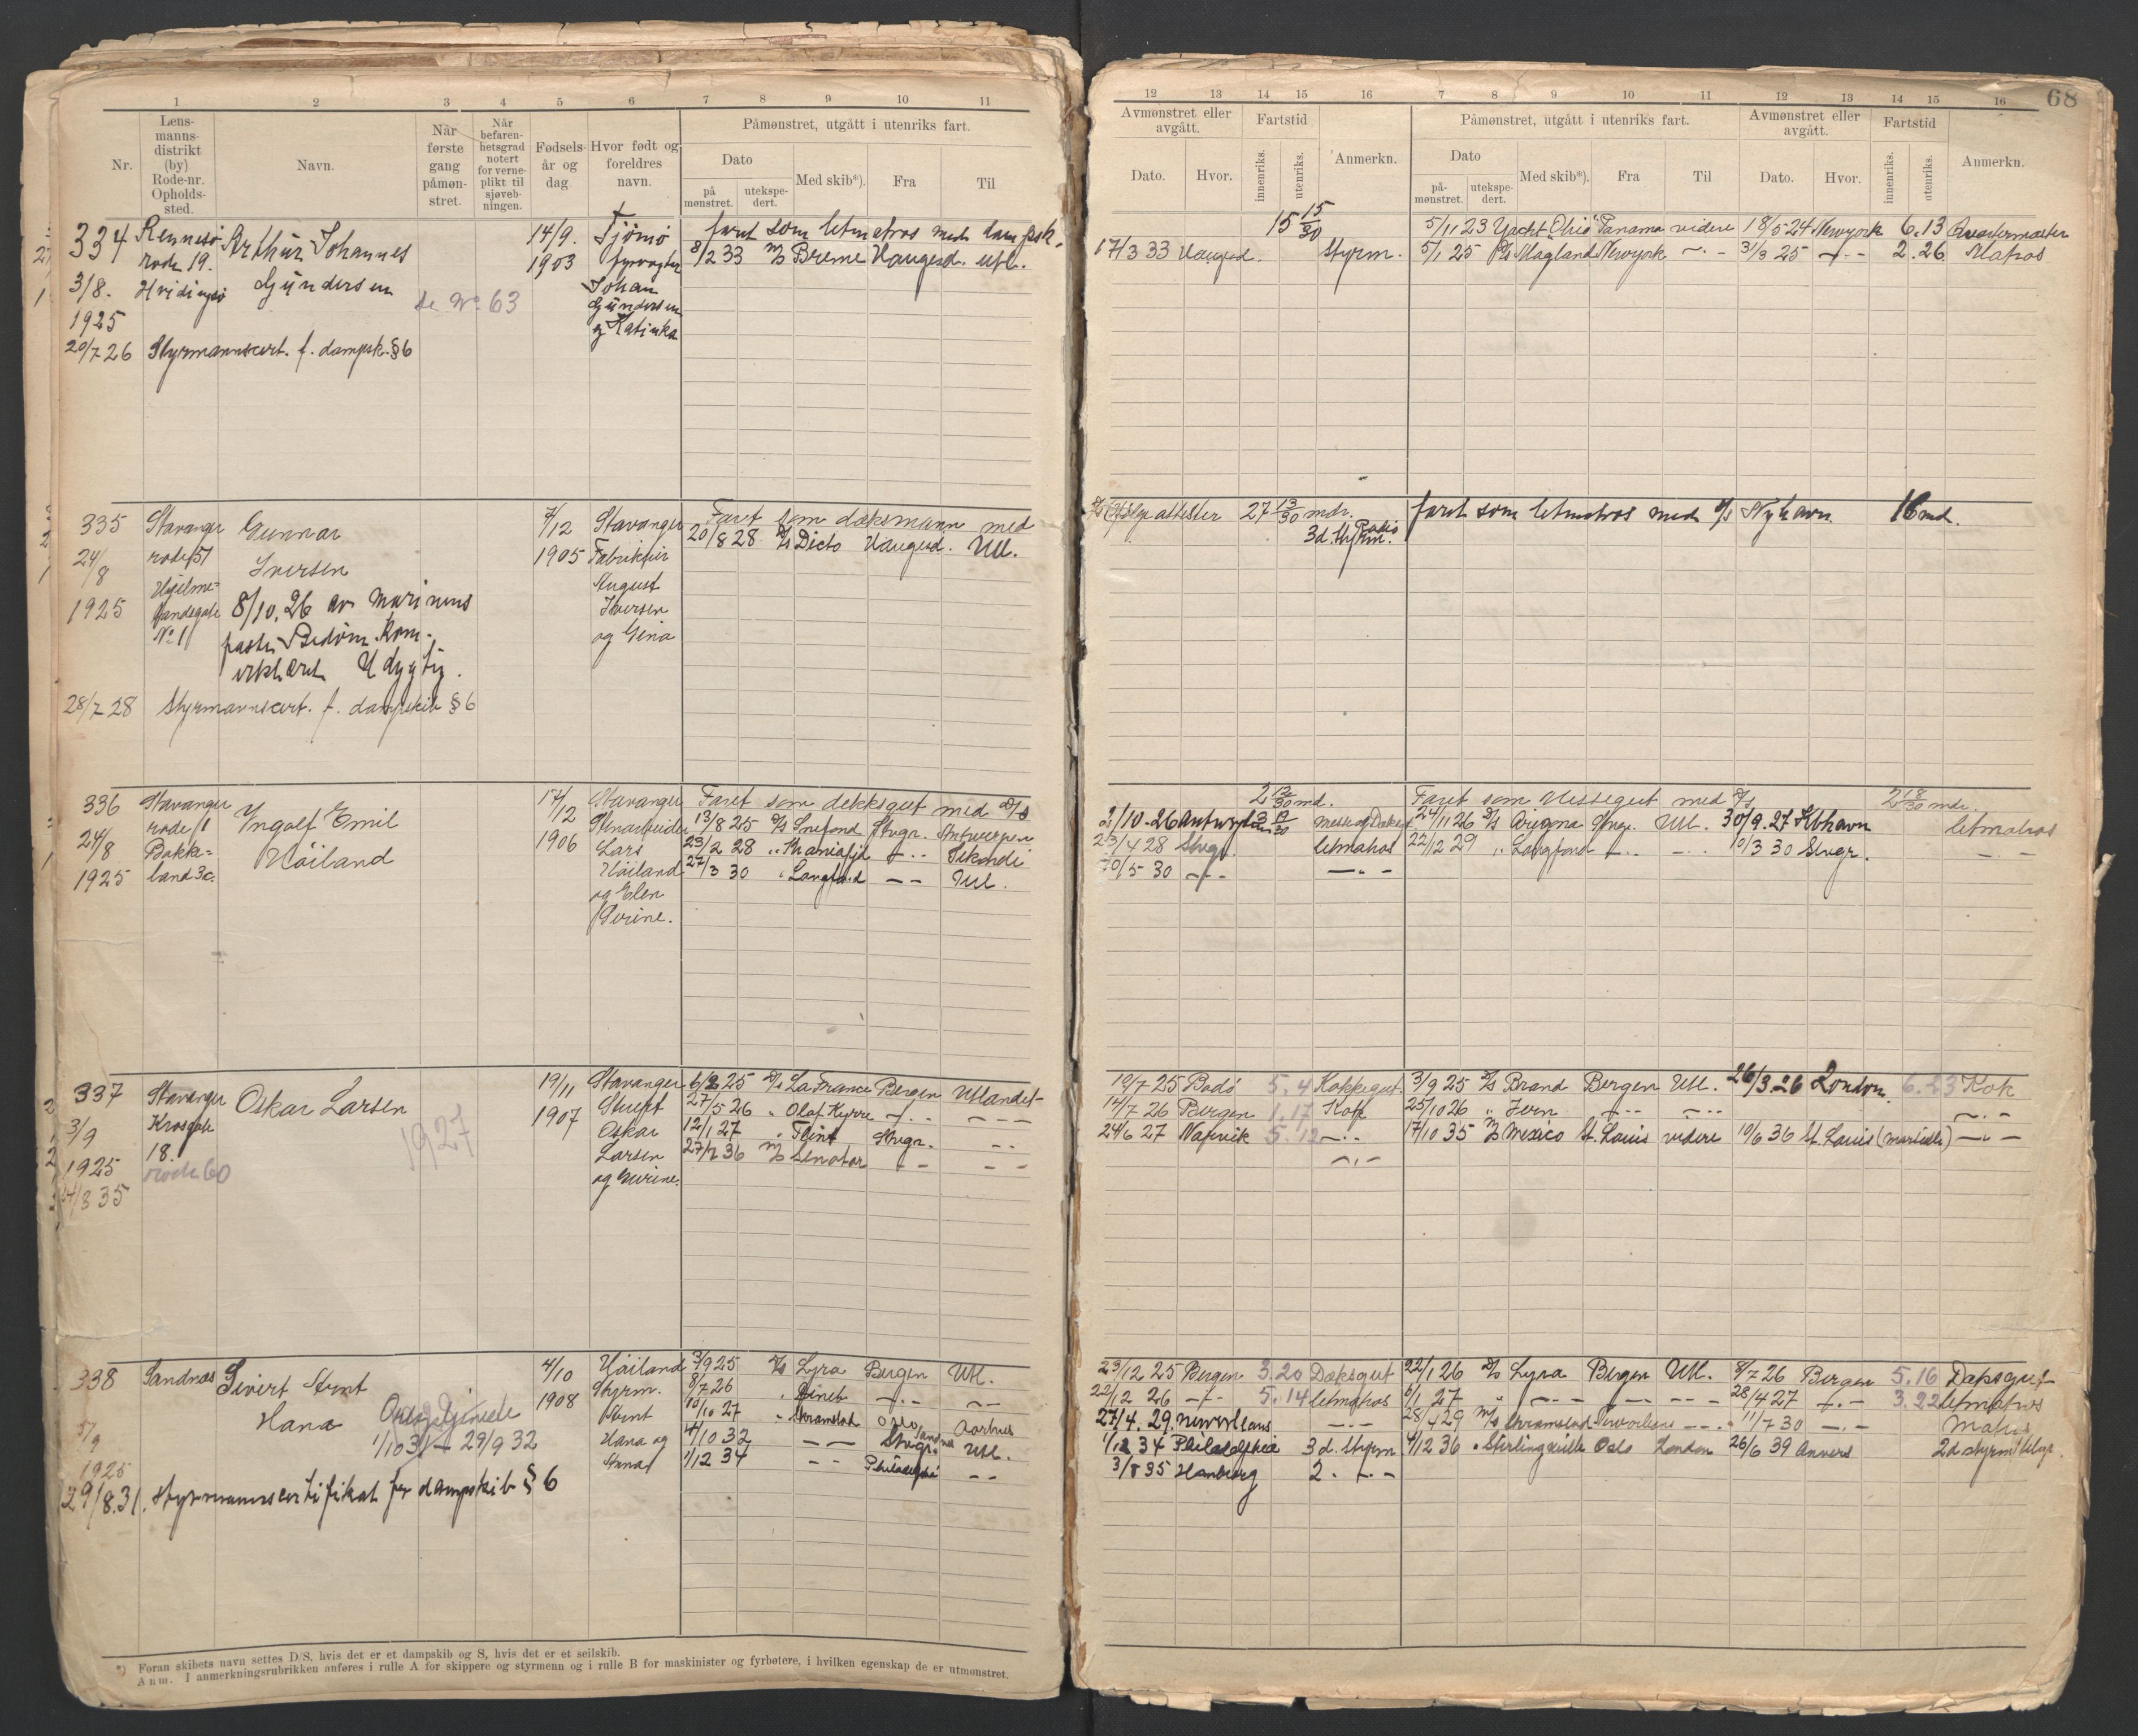 1 2 3 4 5 6 7 8 9 10 11
Nr.
Lens-
manns-
distrikt
(by)
Rode-nr.
Opholds-
sted.
Navn.
Når
første
gang
påmøn-
stret.
Når
befaren-
hetsgrad
notert
for verne-
plikt til
sjøveb-
ningen.
Fødsels-
år og
dag
Hvor født og
foreldres
navn.
Påmønstret, utgått i utenriks fart.
Dato
på
mønstret.
utekspe-
dert.
Med skib*).
Fra
Til
334 Rennesø Arthur Johannes 14/9. Tjömö faret som letmatros med dampsk.
rode 19. 1903 fyrvogter 8/2 33 M/S Breme Haugesd. Utl.
3/8. Hvidingsø Gündersen Johan
1925 se No. 63 Gündersen
og Katinka
20/7 26 Styrmannscert. f. dampsk. §6
335 Stavanger Gunnar 7/12 Stavanger Faret som dæksmann med
24/8 rode 57 Iversen 1905 Fabrikeier 20/8 28 D/S Dicto Haugesd. Utl.
Hjelme- August
1925 landsgate 8/10.26 av marinens Iversen
No 1 faste Bedøm. Kom. og Gina
erklæret Udygtig.
28/7 28 Styrmannscert. f. dampskib §6
336 Stavanger Yngolf Emil 17/12 Stavanger Faret som dekksgut med D/S
24/8 rode 1 Höiland 1906 Stenarbeider 13/8 25 D/S Snefond Stvgr. Antwerpen
Bakke- Lars 23/2 28 " Kraniafjd
1925 land 3c. Höiland 27/3 30 " Langfond — — Utl.
og Elen
Gurine.
337 Stavanger Oskar Larsen 19/11 Stavanger 6/2 25 D/S La France Bergen Utlandet
3/9 Krosgate 1907 Stuert 27/5 26 " Olaf Kyrre — " — — — —
18. 1927 Oskar 12/1 27 " Flint Stvgr. — —
1925 rode 60 Larsen 27/7 36 M/S Senator — — — —
/8 35 og Gurine.
338 Sandnes Sivert Arnt 4/10 Höiland 3/9 25 D/S Lyra Bergen Utl.
Hana 1908 Styrm. 8/7 26 — " — — —
5/9 1/10 31 - 29/9 32 Arnt 10/10 27 " Skramstad Oslo Aarhus
1925 Hana og 4/10 32 — — Stvgr. Sandnes Utl.
Anna 1/12 34 — — Philadelphia — —
29/8.31. Styrmannscertifikat for dampskib § 6
*) Foran skibets navn settes D/S, hvis det er et dampskib og S, hvis det er et seilskib.
Anm. I anmerkningsrubrikken anføres i rulle A for skippere og styrmenn og i rulle B for maskinister og fyrbøtere, i hvilken egenskap de er utmønstret.
12 13 14 15 16 7 8 9 10 11 12 13 14 15 16 68
Avmønstret eller
avgått.
Dato.
Hvor.
Fartstid
innenriks.
utenriks.
Anmerkn.
Påmønstret, utgått i utenriks fart.
Dato
på-
mønstret.
utekspe-
dert.
Med skib*).
Fra
Til
Avmønstret eller
avgått.
Dato.
Hvor.
Fartstid
innenriks.
utenriks.
Anmerkn.
15 15/30 5/11 23 Yacht "Ohio" Panama videre 18/5 24 Newyork 6.13 Qvartermæster
17/3 33 Haugesd. Styrm. 5/1 25 D/S Magland Newyork — " — 31/3 25 — " — 2.26 Matros
attester 27 13/30 mdr. faret som letmatros med D/S Nyhavn 16 md.
3d. Styrm. Radio
2 12/30 md. Faret som Messegut med D/S 2 18/30 mdr.
2/10.26 Antwerpen Messe og Daksgt 24/11 26 D/S Stvgr. Utl. 30/9.27 Kbhavn letmatros
23/4 28 Stvgr. letmatros 22/12 29 " Langfond — " — — " — 10/3 30 Stvgr. — " —
20/5 30 — " — — " —
19/7 25 Bodö 5.4 Kokkegut 3/9 25 D/S Brand Bergen Utl. 26/3.26 London. 6.23 Kok
14/7 26 Bergen 1.17 Kok 25/10 26 " Jern — " — — " — — " —
24/6 27 Narvik 5.12 — " — 17/10 35 M/S Mexico St. Louis videre 10/6 36 St. Louis (Marseille) — " —
— " —
23/12 25 Bergen 3.20 Dæksgut 22/1 26 D/S Lyra Bergen Utl. 8/7 26 Bergen 5.16 Daksgut
22/12 26 — " — 5.14 letmatros 6/1 27 " — " — — " — — — 28/4 27 — " — 3.22 letmatros
27/4.29. New Orleans — " — 28/4 29 M/S Skramstad New Orleans — " — 11/7 30 — " — Matros
1/12 34 Philadelphia 3 d. Styrm 4/12 36 " Stirlingville Oslo London 26/6 39 Anvers 2d. styrm
3/8 35 Hamburg 2. — " —